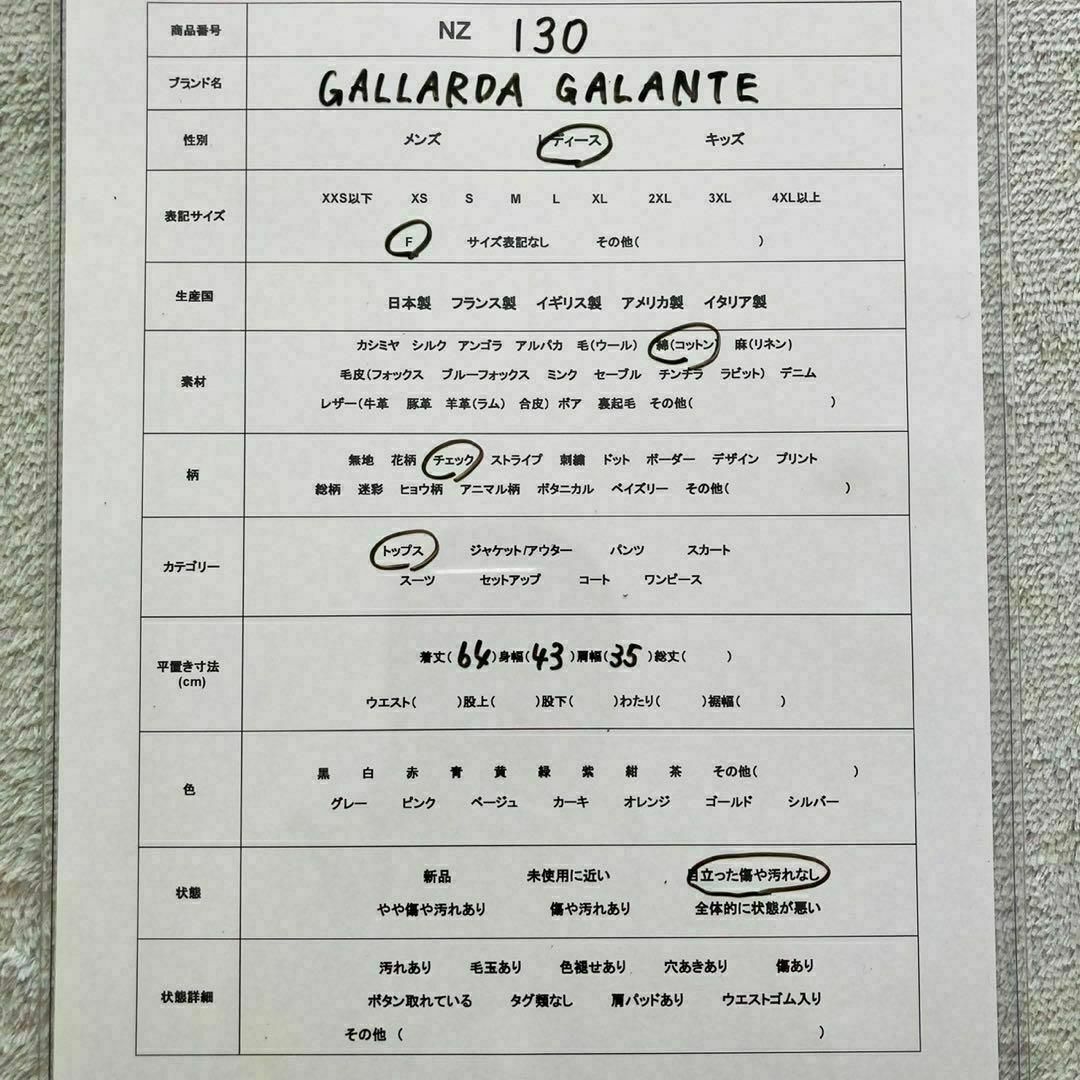 商品番号 NZ 130
ブランド名 GALLARDA GALANTE
性別 メンズ レディース キッズ
表記サイズ XXS以下 XS S M L XL 2XL 3XL 4XL以上
F サイズ表記なし その他( )
生産国 日本製 フランス製 イギリス製 アメリカ製 イタリア製
カシミヤ シルク アンゴラ アルパカ 毛(ウール) 綿(コットン) 麻(リネン)
素材 毛皮(フォックス ブルーフォックス ミンク セーブル チンチラ ラビット) デニム
レザー(牛革 豚革 羊革(ラム) 合皮) ボア 裏起毛 その他( )
柄 無地 花柄 チェック ストライプ 刺繍 ドット ボーダー デザイン プリント
総柄 迷彩 ヒョウ柄 アニマル柄 ボタニカル ペイズリー その他( )
カテゴリー トップス ジャケット/アウター パンツ スカート
スーツ セットアップ コート ワンピース
平置き寸法 着丈(64)身幅(43)肩幅(35)総丈( )
(cm) ウエスト( )股上( )股下( )わたり( )裾幅( )
色 黒 白 赤 青 黄 緑 紫 紺 茶 その他( )
グレー ピンク ベージュ カーキ オレンジ ゴールド シルバー
状態 新品 未使用に近い 目立った傷や汚れなし
やや傷や汚れあり 傷や汚れあり 全体的に状態が悪い
状態詳細 汚れあり 毛玉あり 色褪せあり 穴あきあり 傷あり
ボタン取れている タグ類なし 肩パッドあり ウエストゴム入り
その他 ( )